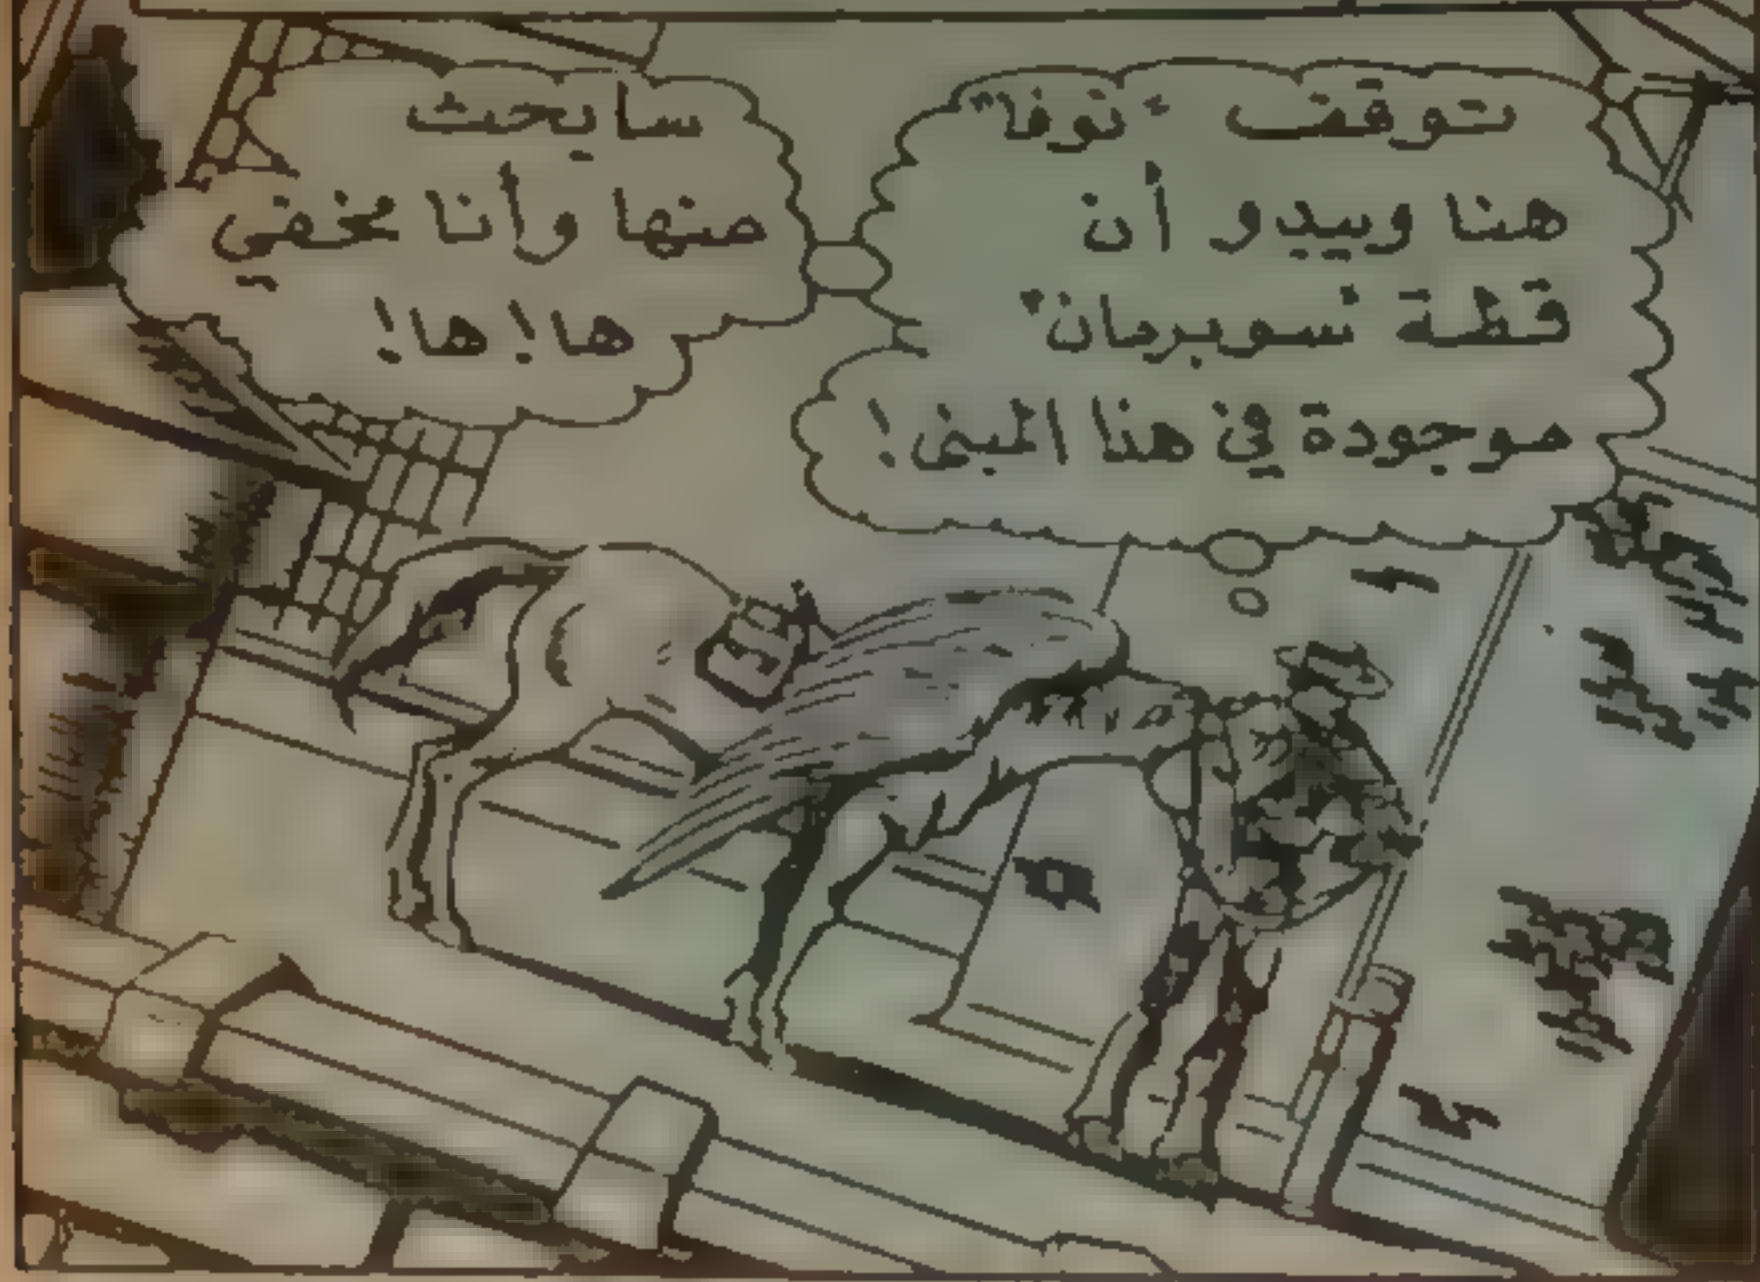 توقف "نوفا"
هنا ويبدو أن
قطة "سوبرمان"
موجودة في هذا المبنى!
سأبحث
عنها وأنا مخفي
ها! ها!